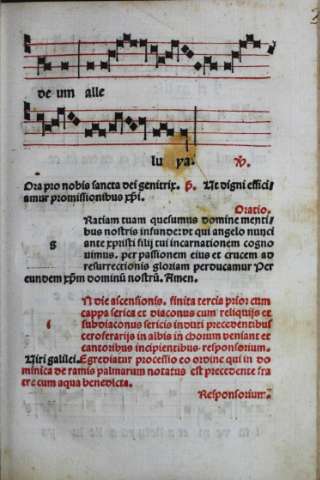 de um alle
lu ya. ℣.
Ora pro nobis sancta dei genitrix. ℟. Ut digni effici
amur promissionibus xp̄i.
Oratio.
Ratiam tuam quesumus domine menti
g bus nostris infunde: ut qui angelo nunci
ante xpisti filij tui incarnationem cogno
uimus. per passionem eius et crucem ad
resurrectionis gloriam perducamur Per
eundem xp̄m dominū nostrū. Amen.
N die ascensionis. finita tercia prior cum
cappa serica et diaconus cum reliquijs et
i subdiaconus sericis induti precedentibus
ceroferarijs in albis in chorum veniant et
cantoribus incipientibus responsorium.
Viri galilei. Egrediatur processio eo ordine qui in do
minica de ramis palmarum notatus est precedente fra
tre cum aqua benedicta.
Responsorium.